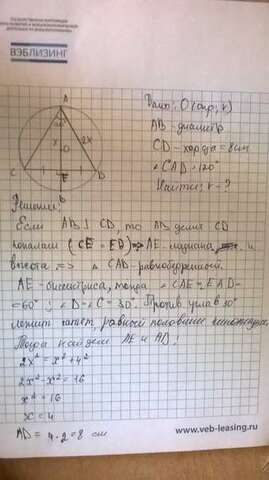 ВЭБЛИЗИНГ
A
x
O
2x
C
E
D
B
Дано: O (окр, r)
AB - диаметр
CD - хорда = 8 см
∠CAD = 120°
Найти: r - ?
Решение:
Если AB ⊥ CD, то AB делит CD
пополам (CE = ED) => AE - медиана, и
высота => △ CAD - равнобедренный.
AE - биссектриса, тогда ∠CAE = EAD =
= 60°; ∠D = ∠C = 30°. Против угла в 30°
лежит катет, равный половине гипотенузы
Тогда найдем AE и AD:
2x² = x² + 4²
2x² - x² = 16
x² = 16
x = 4
AD = 4 · 2 = 8 см
www.veb-leasing.ru